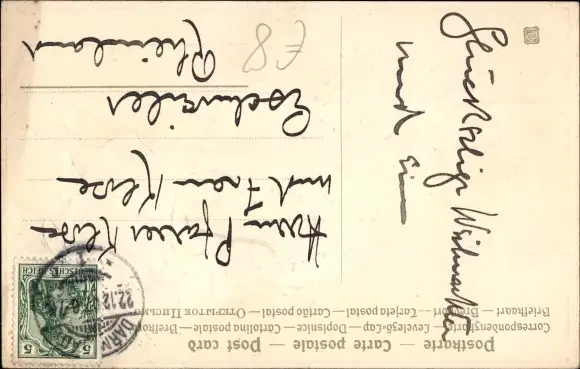 Postkarte — Carte postale — Post card
Correspondenzkarte — Levelező-Lap — Dopisnice — Cartolina postale — Brefkort
Briefkaart — Brevkort — Cartão postal — Tarjeta postal — Открытое письмо
Glückselige Weihnachten
und ein
Herrn Pfarrer Klose
und Frau Klose
Eschweiler
Rheinland
£8
DEUTSCHES REICH
5 5
DARM
22.12